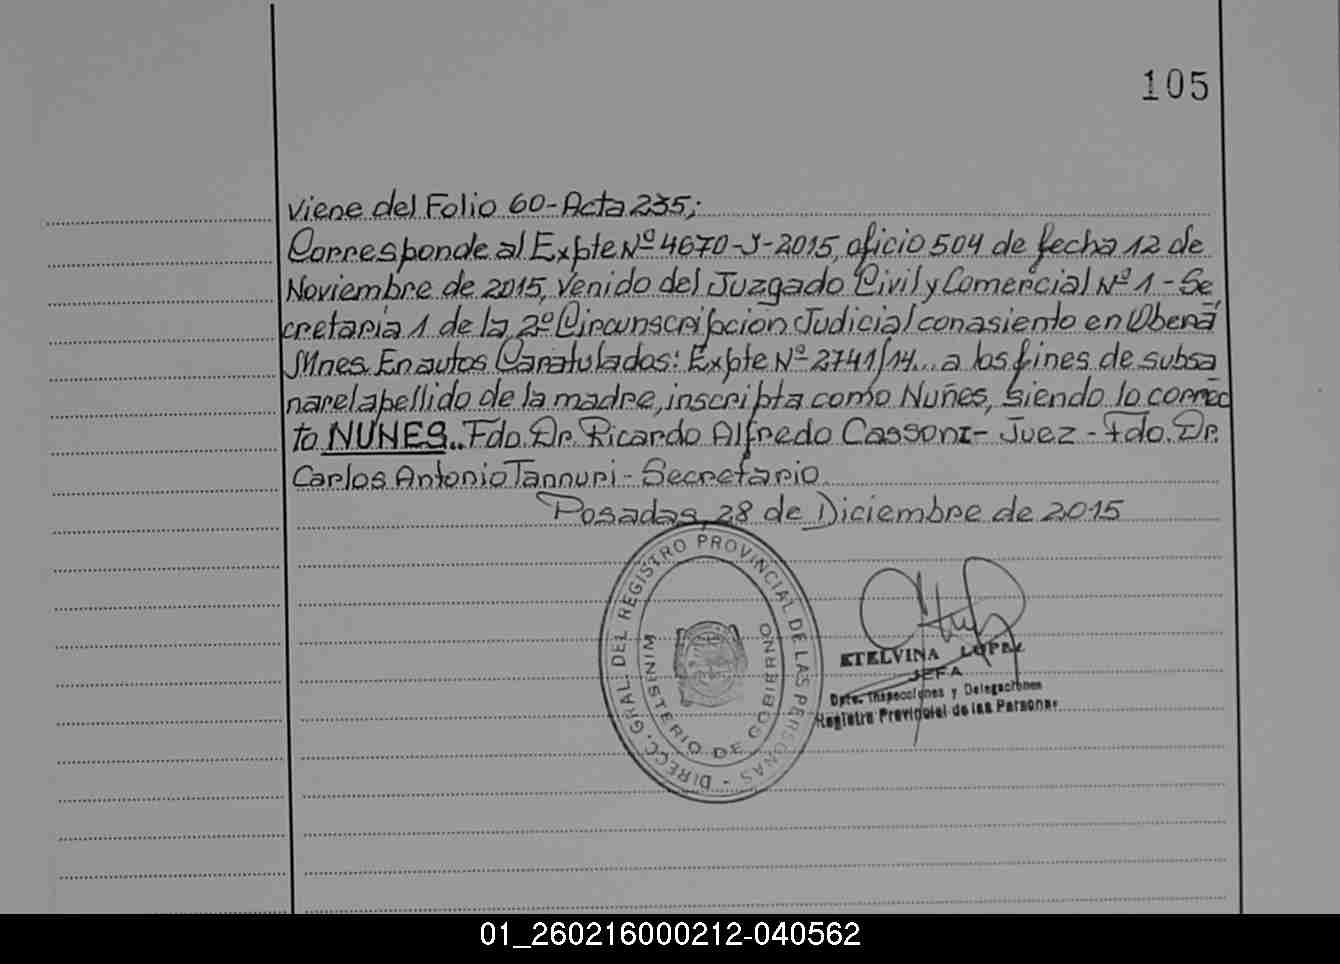 105
Viene del Folio 60-Acta 235;
Corresponde al Expte Nº 4670-J-2015, oficio 504 de fecha 12 de
Noviembre de 2015, Venido del Juzgado Civil y Comercial Nº 1 - Se
cretaria 1 de la 2º Circunscripcion Judicial con asiento en Oberá
Mnes. En autos Caratulados: Expte Nº 2741/14... a los fines de subsa
nar el apellido de la madre, inscripta como Nuñes, siendo lo correc
to NUNES.. Fdo. Dr. Ricardo Alfredo Cassoni - Juez - Fdo. Dr.
Carlos Antonio Tannuri - Secretario.
Posadas, 28 de Diciembre de 2015
DIRECC. GRAL. DEL REGISTRO PROVINCIAL DE LAS PERSONAS -
MINISTERIO DE GOBIERNO
ETELVINA LOPEZ
JEFA
Dpto. Inspecciones y Delegaciones
Registro Provincial de las Personas
01_260216000212-040562